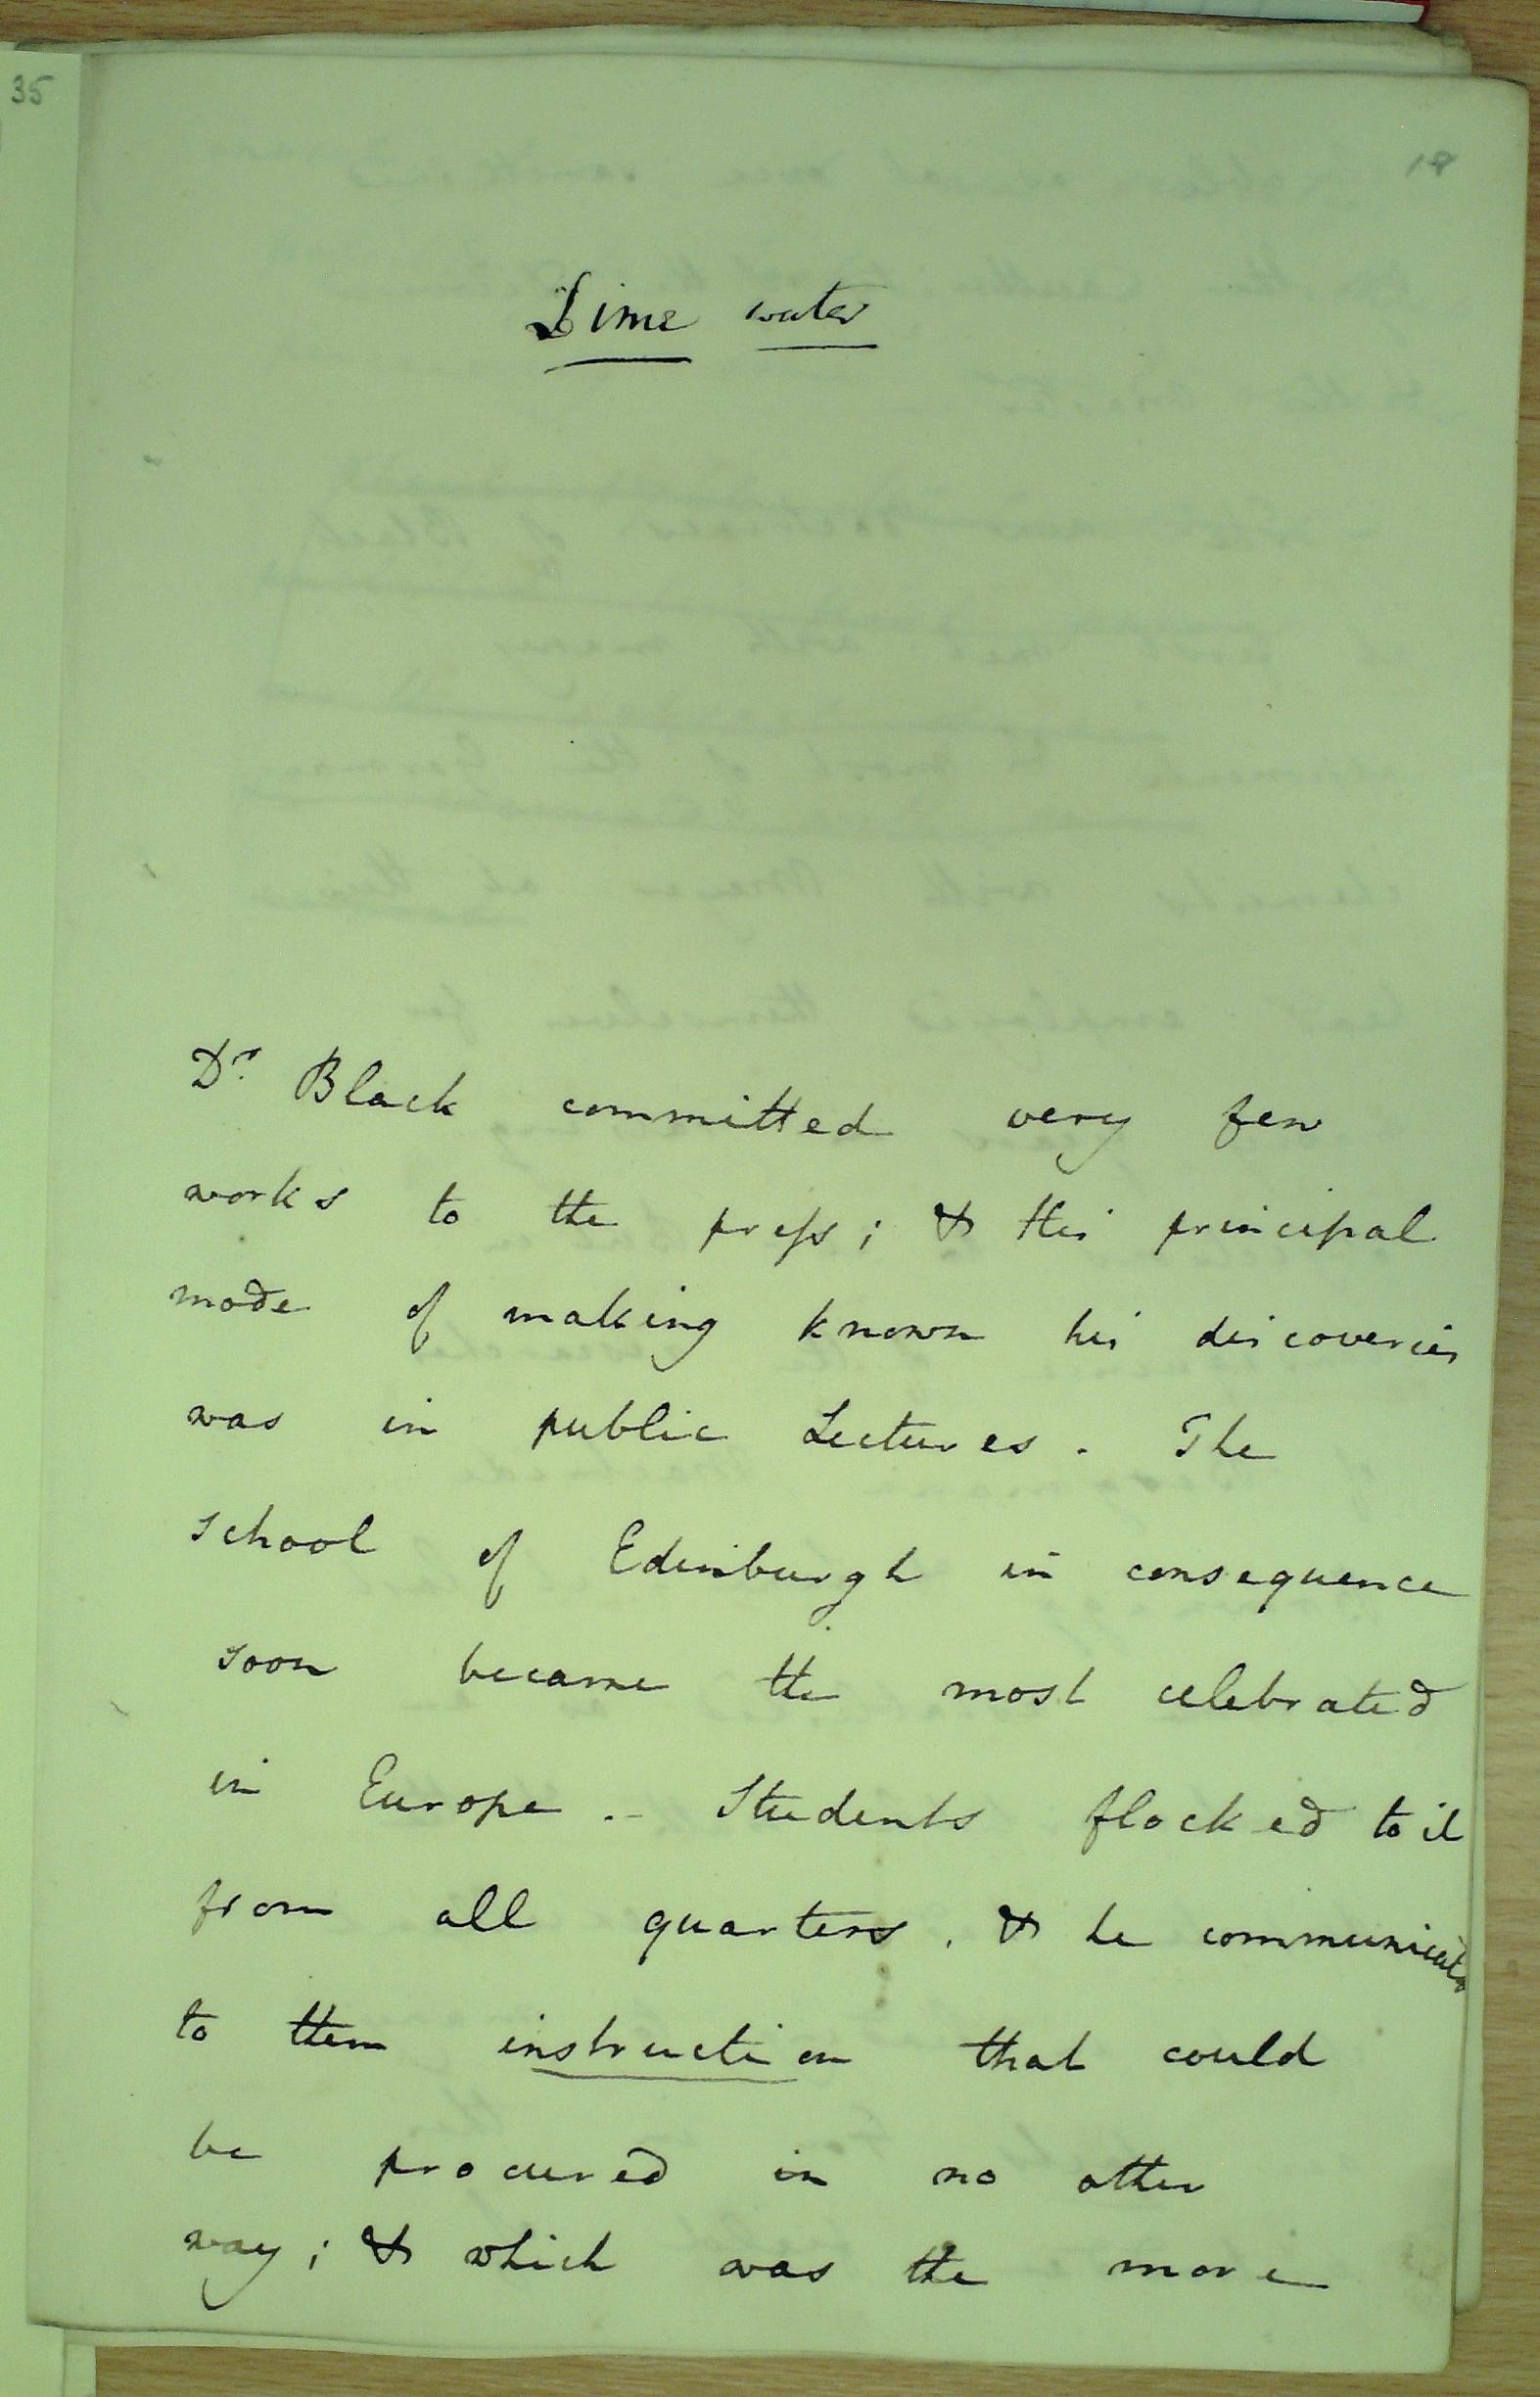 35
18
Lime water
Dr. Black committed very few
works to the press; & his principal
mode of making known his discoveries
was in public Lectures. The
school of Edinburgh in consequence
soon became the most celebrated
in Europe. - Students flocked to it
from all quarters, & he communicated
to them instruction that could
be procured in no other
way; & which was the more